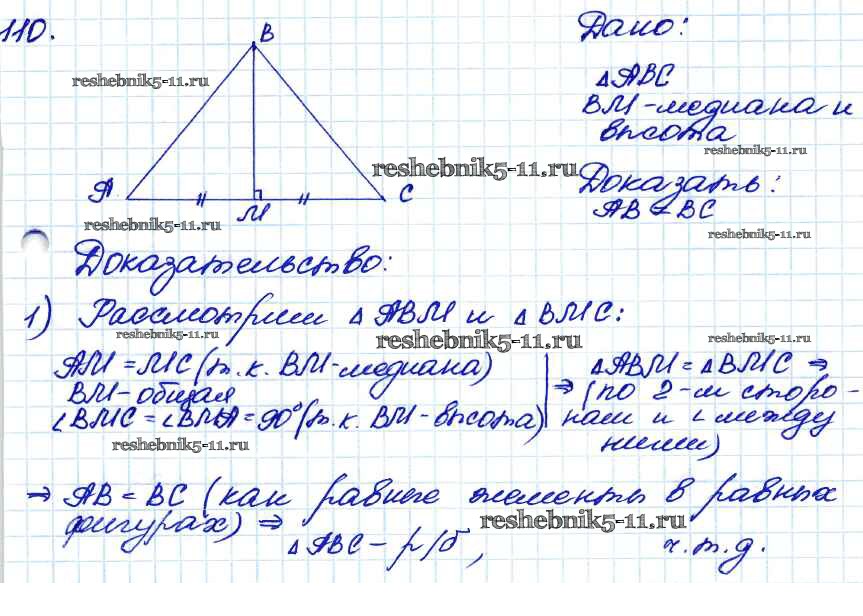 110.
B
Дано:
reshebnik5-11.ru
△ABC
BM-медиана и
высота
reshebnik5-11.ru
reshebnik5-11.ru
Доказать:
A
M
C
AB = BC
reshebnik5-11.ru
reshebnik5-11.ru
Доказательство:
1) Рассмотрим △ABM и △BMC:
reshebnik5-11.ru
reshebnik5-11.ru
reshebnik5-11.ru
AM = MC (т.к. BM-медиана)
BM-общая
∠BMC = ∠BMA = 90° (т.к. BM-высота)
⇒ △ABM = △BMC ⇒
(по 2-м сторо-
нам и ∠ между
ними)
reshebnik5-11.ru
⇒ AB = BC (как равные элементы в равных
фигурах) ⇒
reshebnik5-11.ru
△ABC - р/б,
ч.т.д.